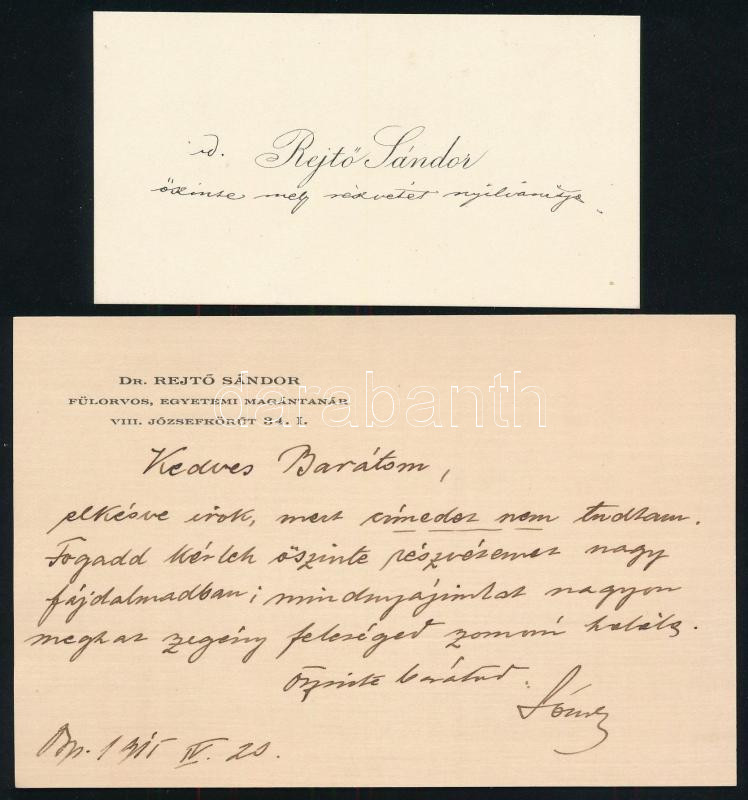 id. Rejtő Sándor
őszinte mély részvétét nyilvánítja.
Dr. REJTŐ SÁNDOR
FÜLORVOS, EGYETEMI MAGÁNTANÁR
VIII. JÓZSEFKÖRÚT 34. I.
darabanth
Kedves Barátom,
elkésve irok, mert címedet nem tudtam.
Fogadd kérlek őszinte részvétemet nagy
fájdalmadban; mindnyájunkat nagyon
meghat szegény feleséged szomorú halála.
Őszinte barátod
Bp. 1915 IV. 20.